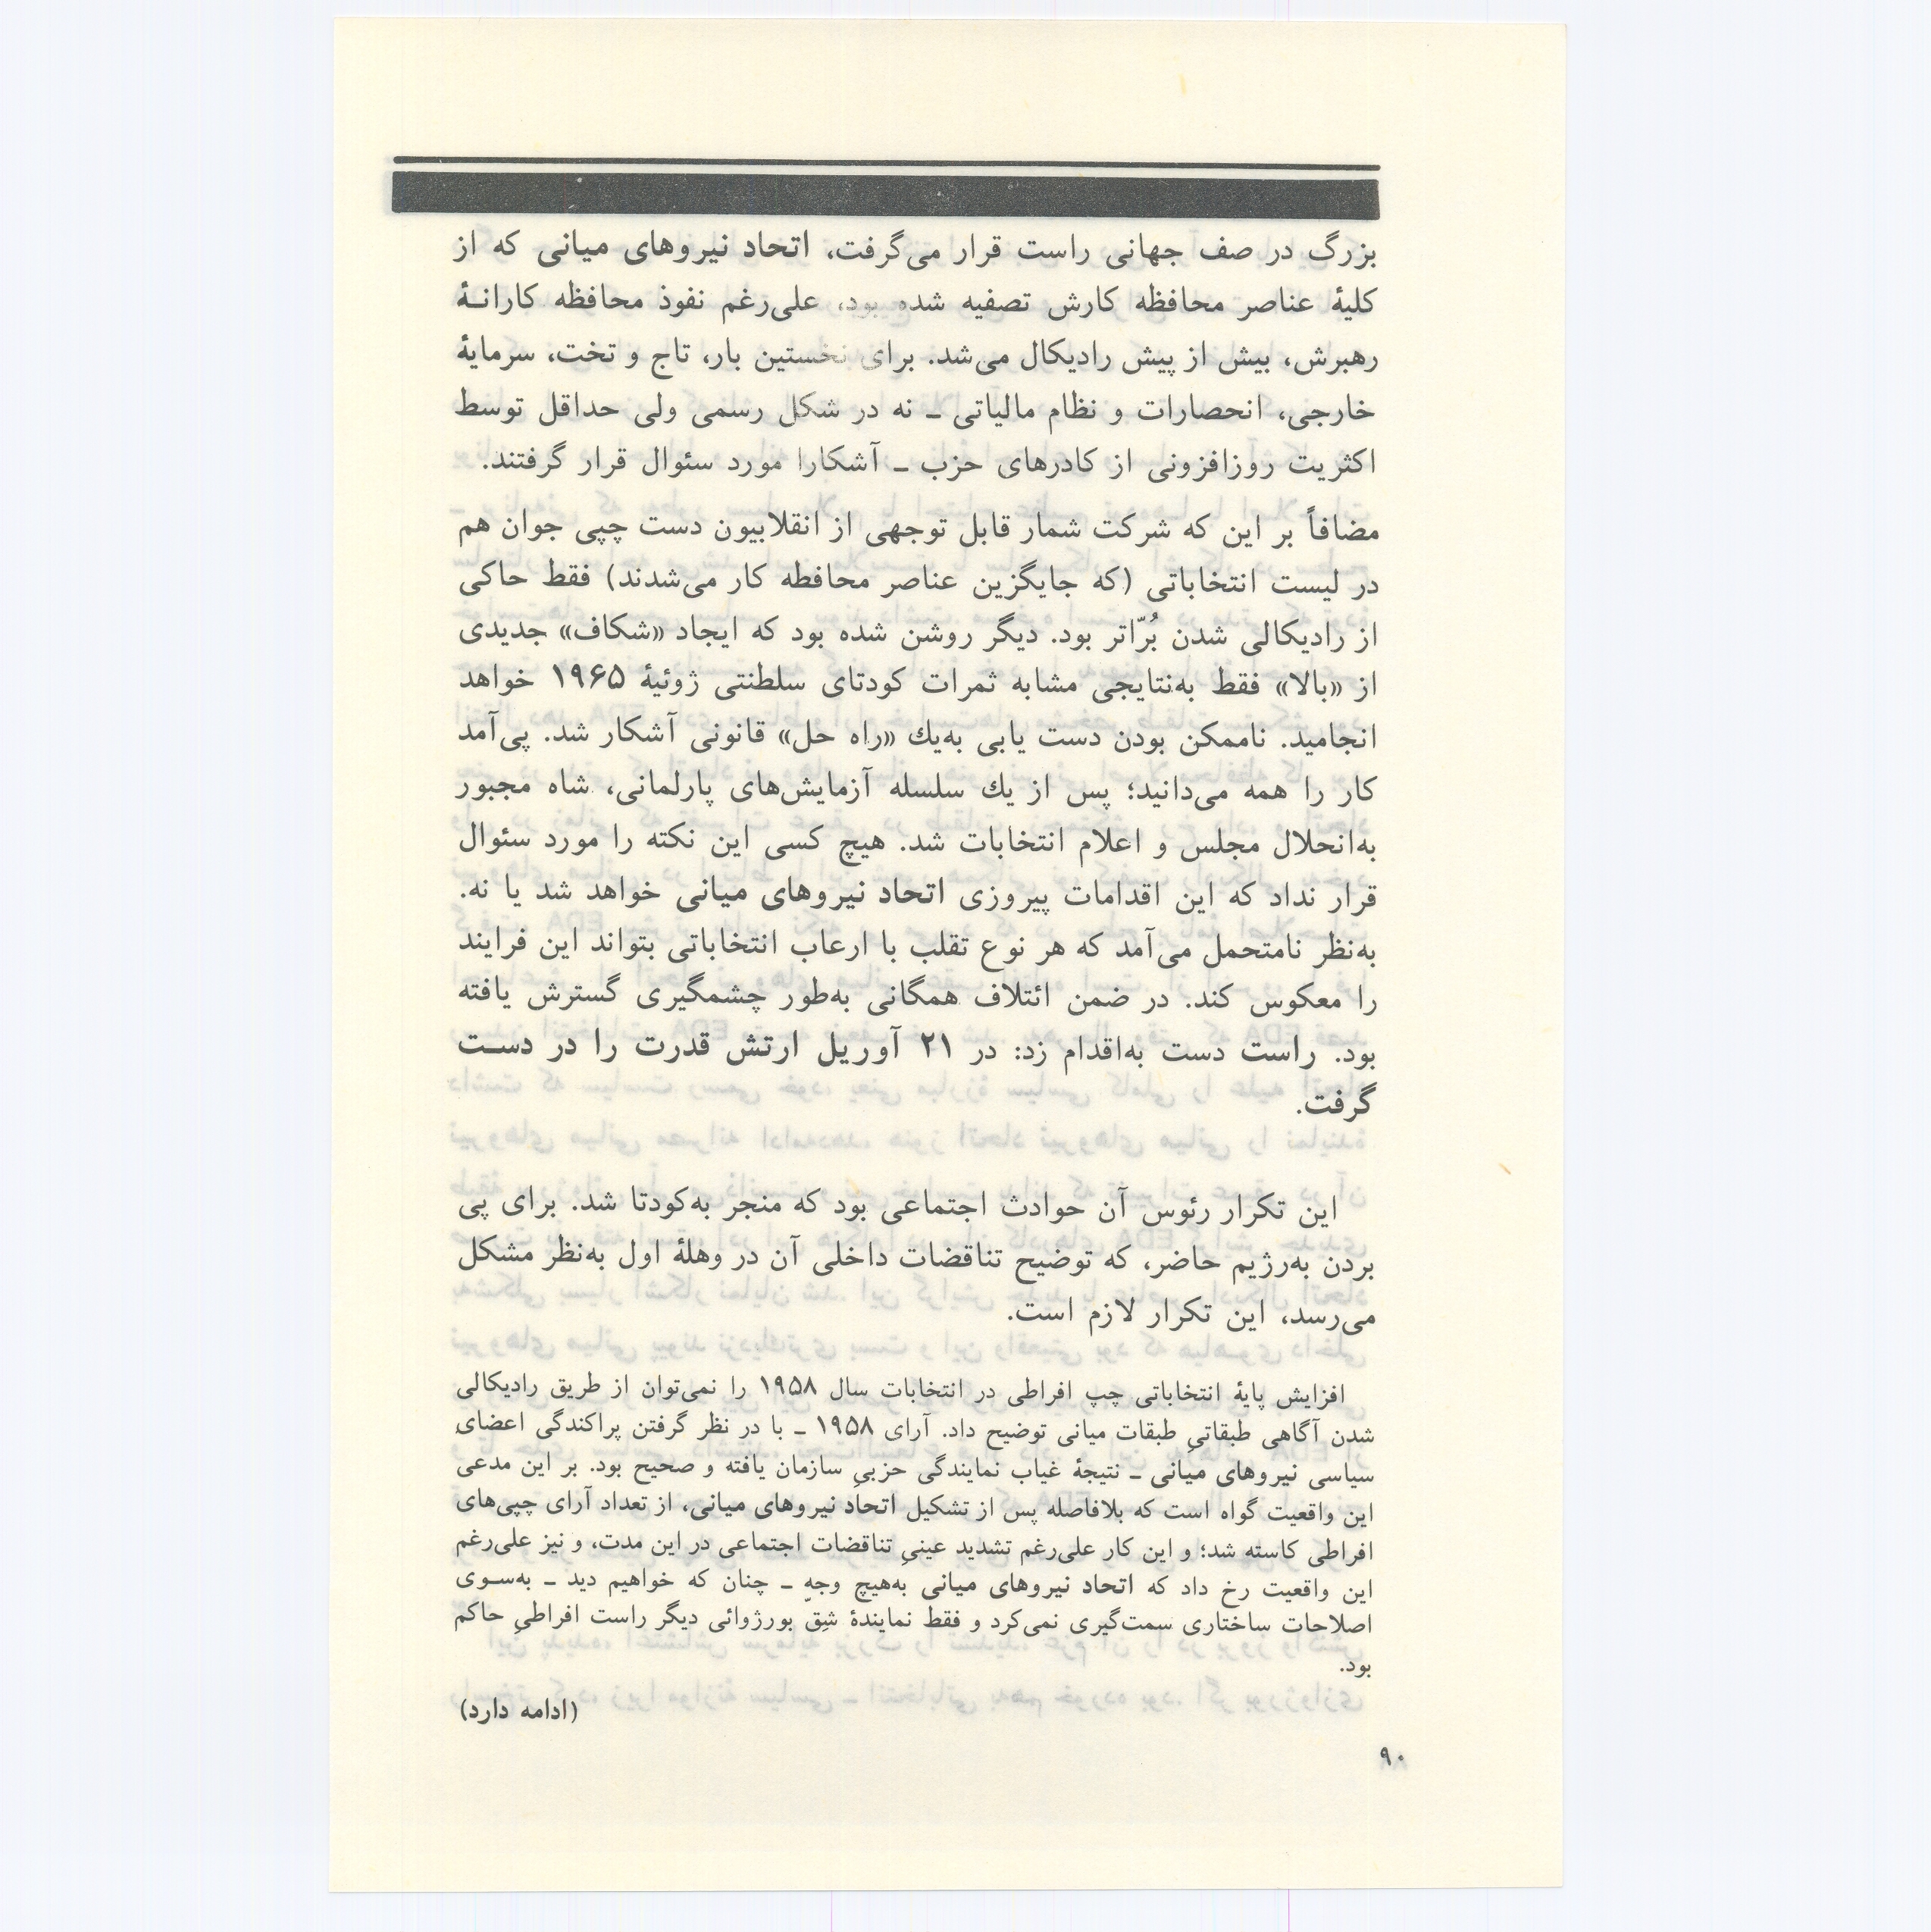 بزرگ در صف جهانی راست قرار می‌گرفت، اتحاد نیروهای میانی که از
کلیهٔ عناصر محافظه کارش تصفیه شده بود، علی‌رغم نفوذ محافظه کارانـهٔ
رهبرش، بیش از پیش رادیکال می‌شد. برای نخستین بار، تاج و تخت، سرمایهٔ
خارجی، انحصارات و نظام مالیاتی ـ نه در شکل رسمی ولی حداقل توسط
اکثریت روزافزونی از کادرهای حزب ـ آشکارا مورد سئوال قرار گرفتند.
مضافاً بر این که شرکت شمار قابل توجهی از انقلابیون دست چپی جوان هم
در لیست انتخاباتی (که جایگزین عناصر محافطه کار می‌شدند) فقط حاکی
از رادیکالی شدن بُرّاتر بود. دیگر روشن شده بود که ایجاد «شکاف» جدیدی
از «بالا» فقط به‌نتایجی مشابه ثمرات کودتای سلطنتی ژوئیهٔ ۱۹۶۵ خواهد
انجامید. ناممکن بودن دست یابی به‌یك «راه حل» قانونی آشکار شد. پی‌آمد
کار را همه می‌دانید؛ پس از یك سلسله آزمایش‌های پارلمانی، شاه مجبور
به‌انحلال مجلس و اعلام انتخابات شد. هیچ کسی این نکته را مورد سئوال
قرار نداد که این اقدامات پیروزی اتحاد نیروهای میانی خواهد شد یا نه.
به‌نظر نامتحمل می‌آمد که هر نوع تقلب با ارعاب انتخاباتی بتواند این فرایند
را معکوس کند. در ضمن ائتلاف همگانی به‌طور چشمگیری گسترش یافته
بود. راست دست به‌اقدام زد: در ۲۱ آوریل ارتش قدرت را در دسـت
گرفت.
این تکرار رئوس آن حوادث اجتماعی بود که منجر به‌کودتا شد. برای پی
بردن به‌رژیم حاضر، که توضیح تناقضات داخلی آن در وهلهٔ اول به‌نظر مشکل
می‌رسد، این تکرار لازم است.
افزایش پایهٔ انتخاباتی چپ افراطی در انتخابات سال ۱۹۵۸ را نمی‌توان از طریق رادیکالی
شدن آگاهی طبقاتیِ طبقات میانی توضیح داد. آرای ۱۹۵۸ ـ با در نظر گرفتن پراکندگی اعضایِ
سیاسی نیروهای میانی ـ نتیجهٔ غیاب نمایندگی حزبیِ سازمان یافته و صحیح بود. بر این مدعی
این واقعیت گواه است که بلافاصله پس از تشکیل اتحاد نیروهای میانی، از تعداد آرای چپی‌های
افراطی کاسته شد؛ و این کار علی‌رغم تشدید عینیِ تناقضات اجتماعی در این مدت، و نیز علی‌رغم
این واقعیت رخ داد که اتحاد نیروهای میانی به‌هیچ وجه ـ چنان که خواهیم دید ـ به‌سـوی
اصلاحات ساختاری سمت‌گیری نمی‌کرد و فقط نمایندهٔ شِقّ بورژوائی دیگر راست افراطیِ حاکم
بود.
(ادامه دارد)
۹۰